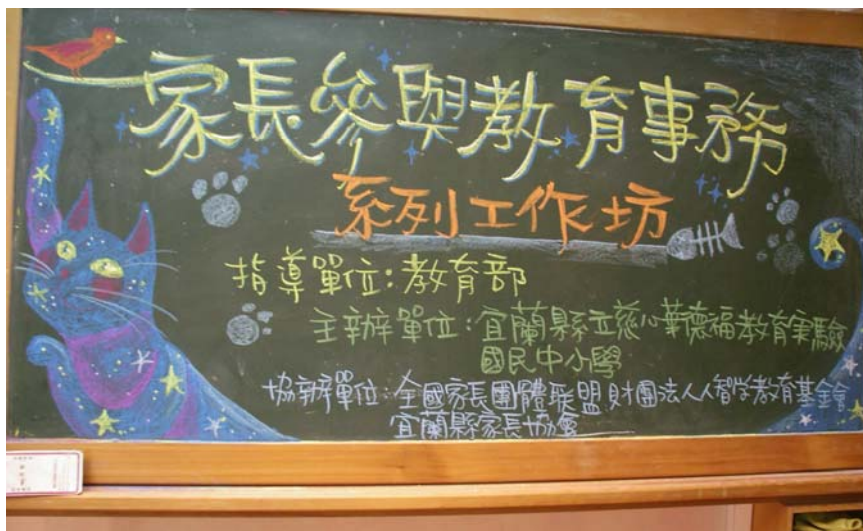 家長參與教育事務
系列工作坊
指導單位:教育部
主辦單位:宜蘭縣立慈心華德福教育実驗
國民中小學
協辦單位:全國家長團體联盟財團法人人智学教育基金會
宜蘭縣家長協會